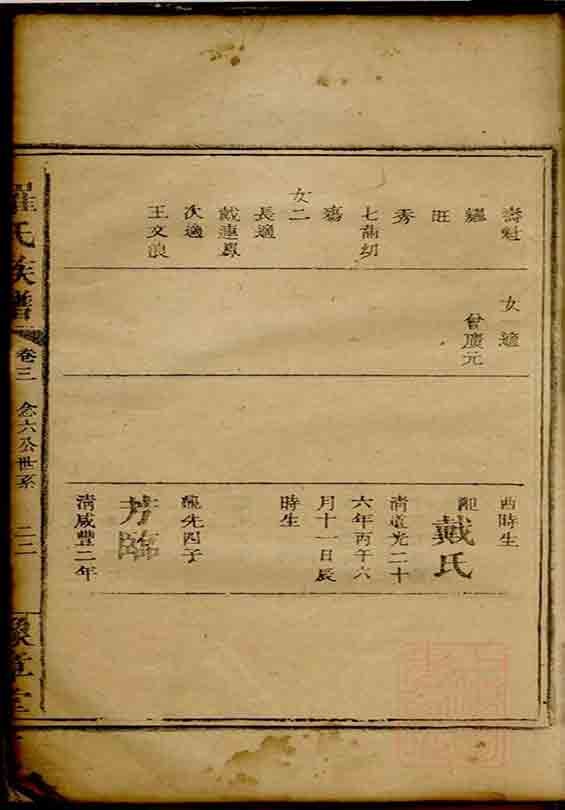 壽魁
旺
秀
七蒲幼
女二
長適
戴連興
次適
王文浪
女適
曾廣元
酉時生
配
戴氏
清道光二十
六年丙午六
月十一日辰
時生
龍先四子
芳臨
清咸豐二年
羅氏族譜
卷三
念六公世系
二二
豫章堂